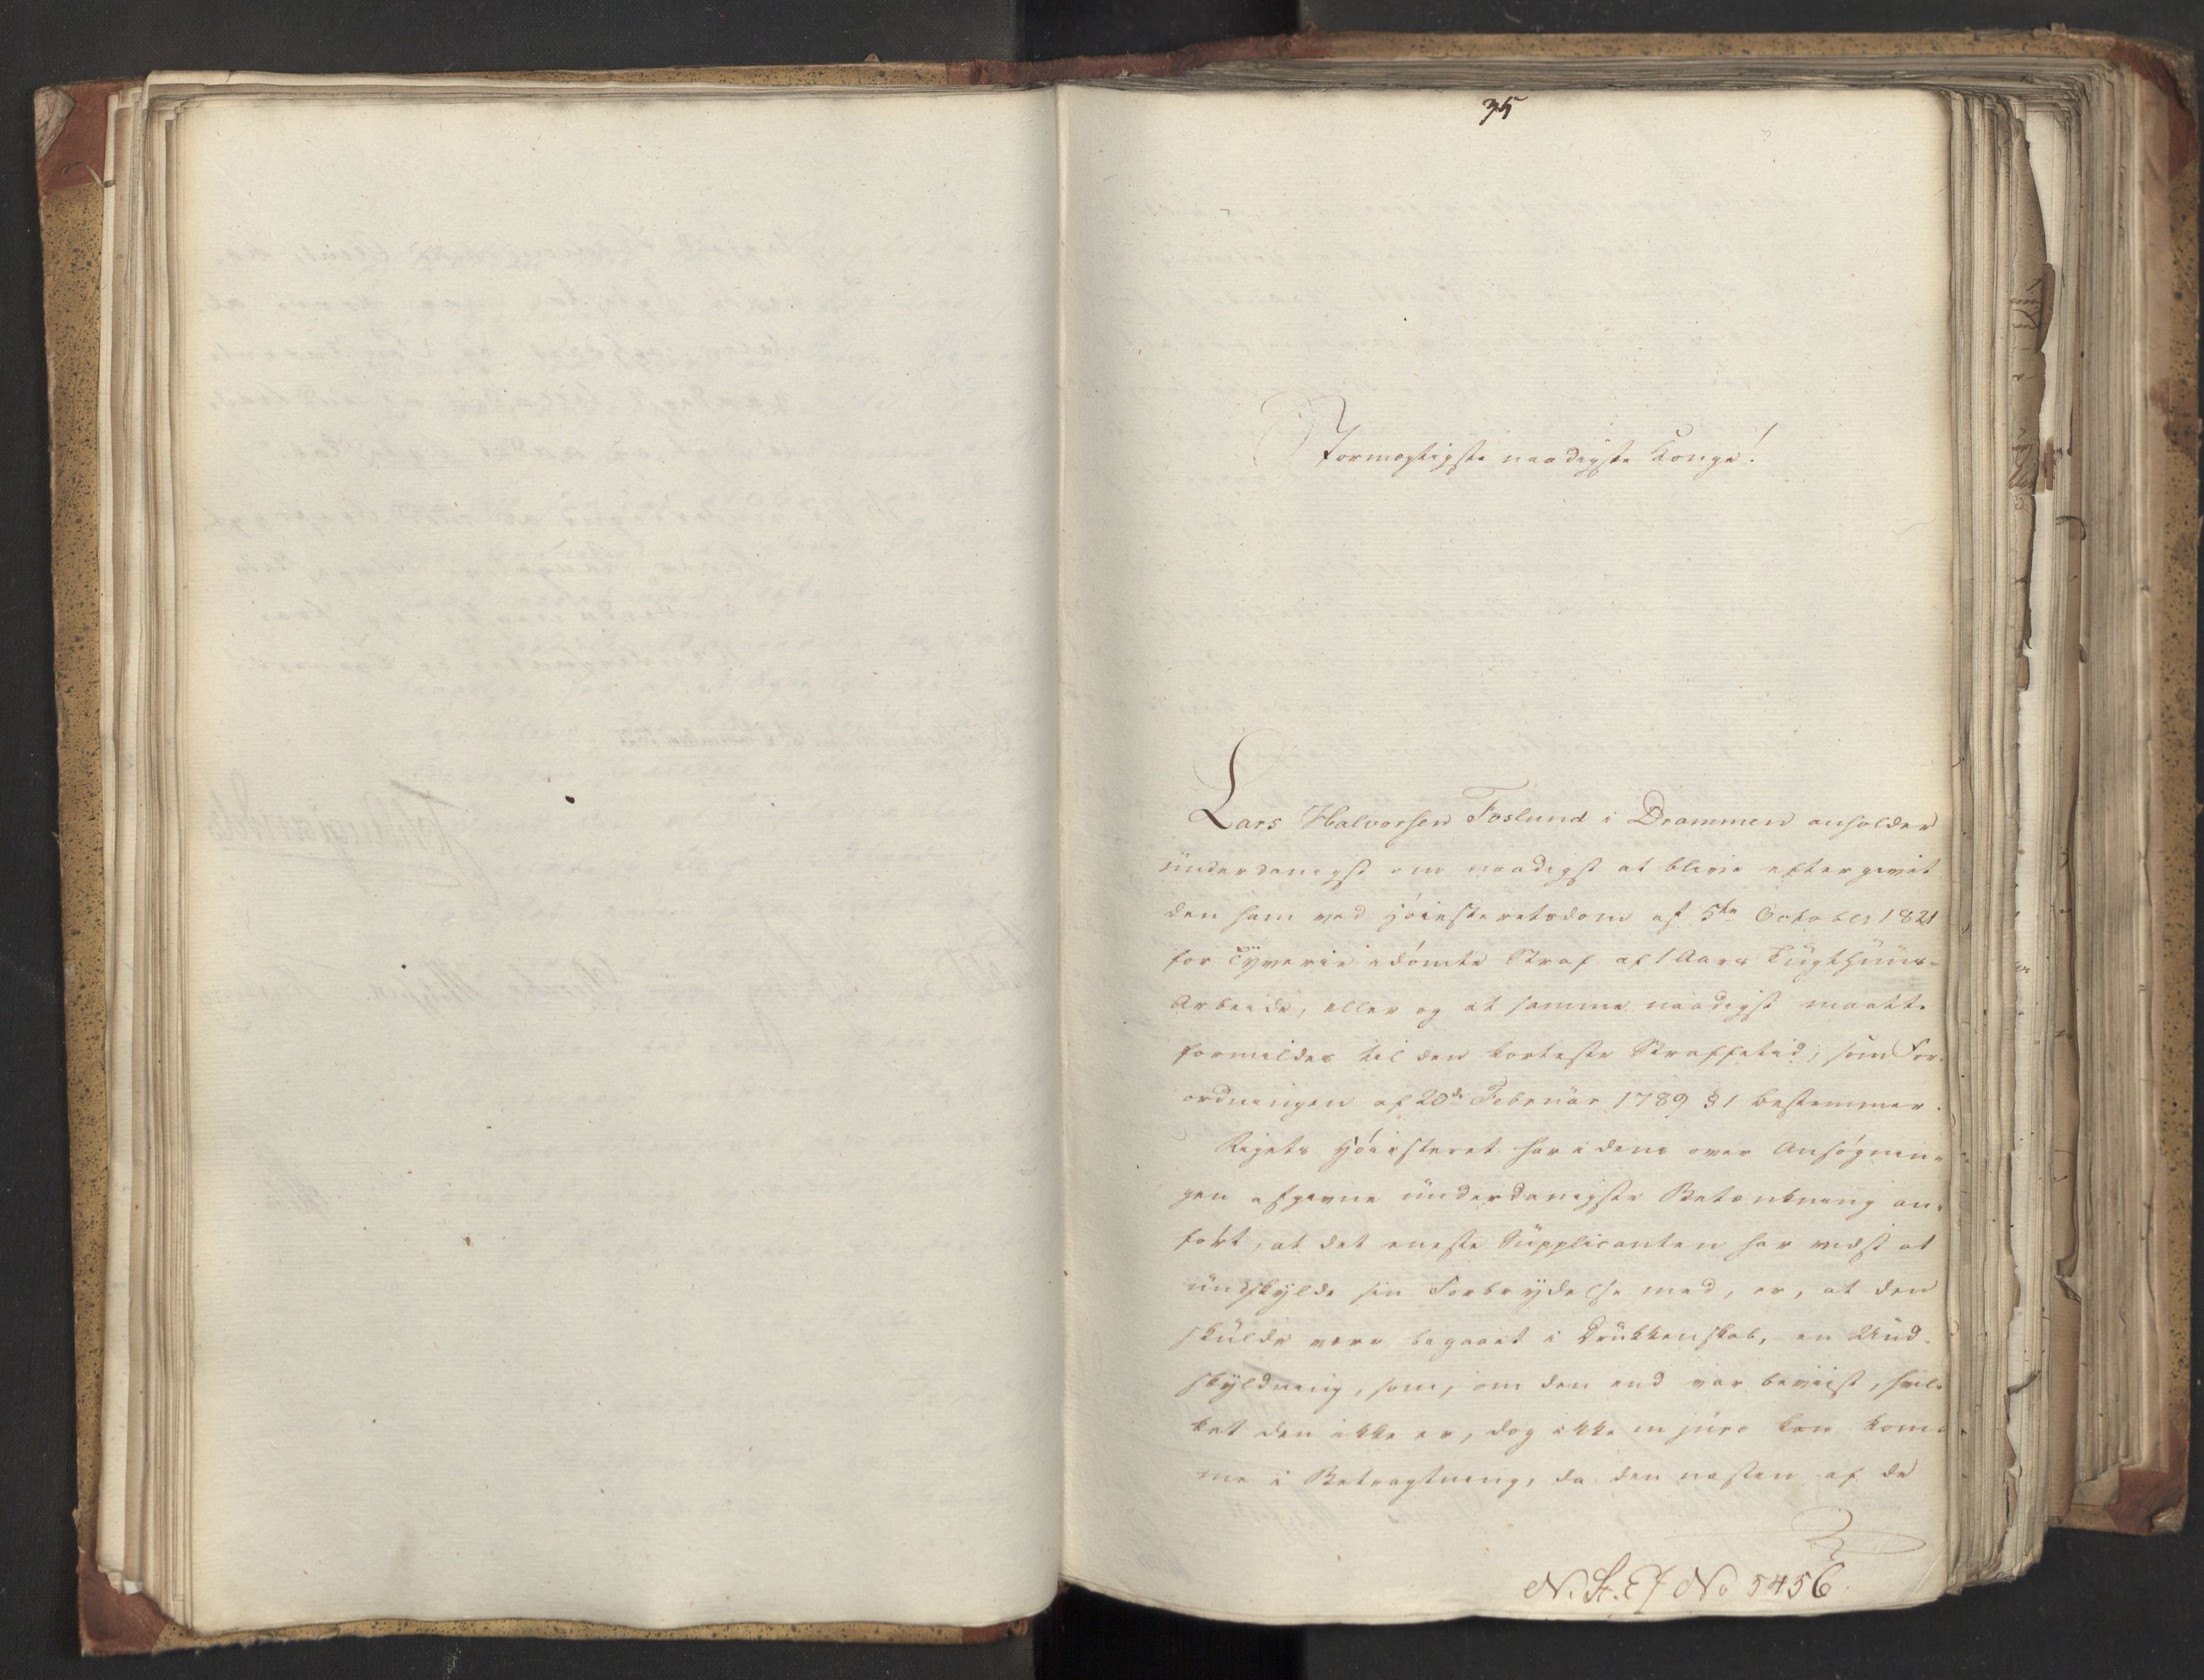 35
Stormægtigste naadigste Konge!
Lars Halvorsen Foslund i Drammen anholder
ünderdanigst om naadigst at blive eftergivet
den ham ved Höiesteretsdom af 5te October 1821
for Tyverie idömte Straf af 1 Aars Tügthüüs-
Arbeide, eller og at samme naadigst maatte
formildes til den korteste Straffetid, som For-
ordningen af 20de Februar 1789 § 1 bestemmer.
Rigets Höiesteret har i dens over Ansøgnin-
gen afgivne ünderdanigste Betænkning an-
fört, at det eneste Süpplicanten har vidst at
ündskylde sin Forbrydelse med, er, at den
skülde være begaaet i Drükkenskab, en Und-
skyldning, som, om den end var beviist, hvil-
ket den ikke er, dog ikke in jure kan kom-
me i Betragtning, da den næsten af de
N. St. Ex No 5456.